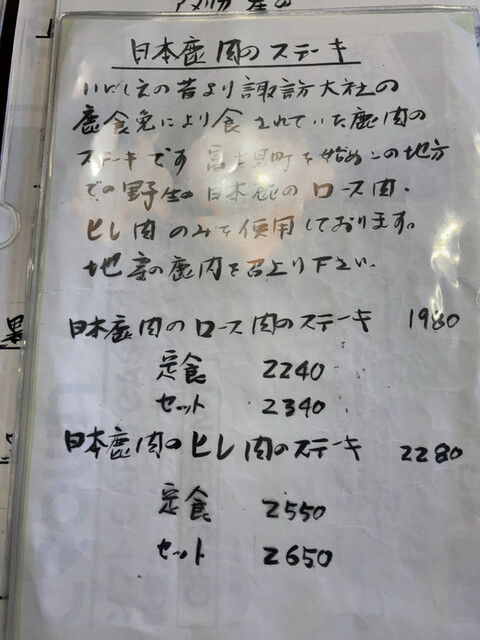 アメリカ産の
日本鹿肉のステーキ
いにしえの昔より諏訪大社の
鹿食免により食されていた鹿肉の
ステーキです 富士見町を始めこの地方
での野生の日本鹿のロース肉、
ヒレ肉のみを使用しております。
地産の鹿肉を召上り下さい。
日本鹿肉のロース肉のステーキ 1980
定食 2240
セット 2340
日本鹿肉のヒレ肉のステーキ 2280
定食 2550
セット 2650